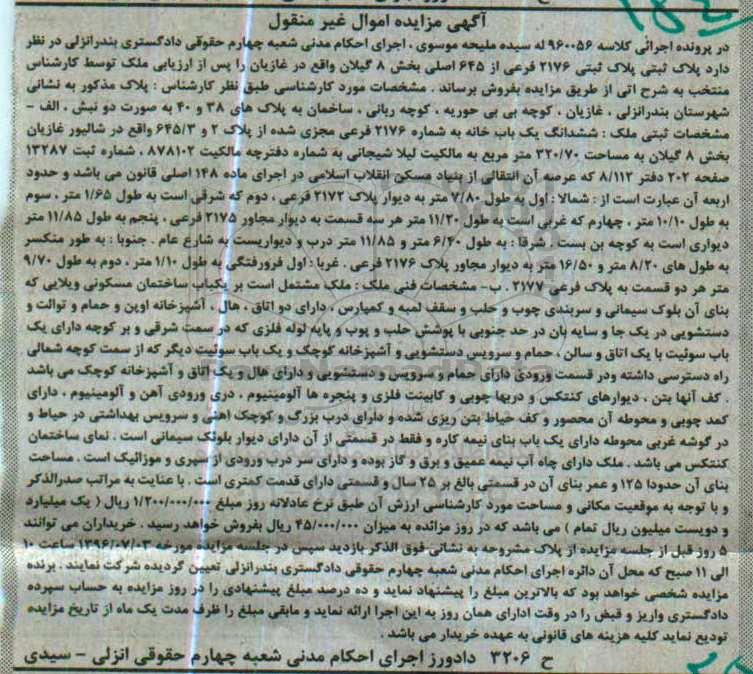 آگهی مزایده اموال غیر منقول
در پرونده اجرائی کلاسه ۹۶۰۰۵۶ له سیده ملیحه موسوی ، اجرای احکام مدنی شعبه چهارم حقوقی دادگستری بندرانزلی در نظر
دارد پلاک ثبتی پلاک ثبتی ۲۱۷۶ فرعی از ۶۴۵ اصلی بخش ۸ گیلان واقع در غازیان را پس از ارزیابی ملک توسط کارشناس
منتخب به شرح اتی از طریق مزایده بفروش برساند . مشخصات مورد کارشناسی طبق نظر کارشناس : پلاک مذکور به نشانی
شهرستان بندرانزلی ، غازیان ، کوچه بی بی حوریه ، کوچه ربانی ، ساخمان به پلاک های ۳۸ و ۴۰ به صورت دو نبش ، الف -
مشخصات ثبتی ملک : ششدانگ یک باب خانه به شماره ۲۱۷۶ فرعی مجزی شده از پلاک ۲ و ۶۴۵/۳ واقع در شالیور غازیان
بخش ۸ گیلان به مساحت ۳۲۰/۷۰ متر مربع به مالکیت لیلا شیجانی به شماره دفترچه مالکیت ۸۷۸۱۰۲ ، شماره ثبت ۱۳۲۸۷
صفحه ۲۰۲ دفتر ۸/۱۱۲ که عرصه آن انتقالی از بنیاد مسکن انقلاب اسلامی در اجرای ماده ۱۴۸ اصلی قانون می باشد و حدود
اربعه آن عبارت است از : شمالا : اول به طول ۷/۸۰ متر به دیوار پلاک ۲۱۷۲ فرعی ، دوم که شرقی است به طول ۱/۶۵ متر ، سوم
به طول ۱۰/۱۰ متر ، چهارم که غربی است به طول ۱۱/۲۰ متر هر سه قسمت به دیوار مجاور ۲۱۷۵ فرعی ، پنجم به طول ۱۱/۸۵ متر
دیواری است به کوچه بن بست . شرقا : به طول ۶/۴۰ متر و ۱۱/۸۵ متر درب و دیواریست به شارع عام . جنوبا : به طور منکسر
به طول های ۸/۲۰ متر و ۱۶/۵۰ متر به دیوار مجاور پلاک ۲۱۷۶ فرعی . غربا : اول فرورفتگی به طول ۱/۱۰ متر ، دوم به طول ۹/۷۰
متر هر دو قسمت به پلاک فرعی ۲۱۷۷ . ب- مشخصات فنی ملک : ملک مشتمل است بر یکباب ساختمان مسکونی ویلایی که
بنای آن بلوک سیمانی و سربندی چوب و حلب و سقف لمبه و کمپارس ، دارای دو اتاق ، هال ، آشپزخانه اوپن و حمام و توالت و
دستشویی در یک جا و سایه بان در حد جنوبی با پوشش حلب و پوب و پایه لوله فلزی که در سمت شرقی و بر کوچه دارای یک
باب سوئیت با یک اتاق و سالن ، حمام و سرویس دستشویی و آشپزخانه کوچک و یک باب سوئیت دیگر که از سمت کوچه شمالی
راه دسترسی داشته ودر قسمت ورودی دارای حمام و سرویس و دستشویی و دارای هال و یک اتاق و آشپزخانه کوچک می باشد
. کف آنها بتن ، دیوارهای کنتکس و دربها چوبی و کابینت فلزی و پنجره ها آلومینیوم ، دری ورودی آهن و آلومینیوم ، دارای
کمد چوبی و محوطه آن محصور و کف حیاط بتن ریزی شده و دارای درب بزرگ و کوچک اهنی و سرویس بهداشتی در حیاط و
در گوشه غربی محوطه دارای یک باب بنای نیمه کاره و فقط در قسمتی از آن دارای دیوار بلوک سیمانی است . نمای ساختمان
کنتکس می باشد . ملک دارای چاه آب نیمه عمیق و برق و گاز بوده و دارای سر درب ورودی از سپری و موزائیک است . مساحت
بنای آن حدودا ۱۲۵ و عمر بنای آن در قسمتی بالغ بر ۲۵ سال و قسمتی دارای قدمت کمتری است . با عنایت به مراتب صدرالذکر
و با توجه به موقعیت مکانی و مساحت مورد کارشناسی ارزش آن طبق نرخ عادلانه روز مبلغ ۱/۲۰۰/۰۰۰/۰۰۰ ریال ( یک میلیارد
و دویست میلیون ریال تمام ) می باشد که در روز مزائده به میزان ۴۵/۰۰۰/۰۰۰ ریال بفروش خواهد رسید . خریداران می توانند
۵ روز قبل از جلسه مزایده از پلاک مشروحه به نشانی فوق الذکر بازدید سپس در جلسه مزایده مورخه ۱۳۹۶/۰۷/۰۳ ساعت ۱۰
الی ۱۱ صبح که محل آن دائره اجرای احکام مدنی شعبه چهارم حقوقی دادگستری بندرانزلی تعیین گردیده شرکت نمایند . برنده
مزایده شخصی خواهد بود که بالاترین مبلغ را پیشنهاد نماید و ده درصد مبلغ پیشنهادی را در روز مزایده به حساب سپرده
دادگستری واریز و قبض را در وقت ادارای همان روز به این اجرا ارائه نماید و مابقی مبلغ را ظرف مدت یک ماه از تاریخ مزایده
تودیع نماید کلیه هزینه های قانونی به عهده خریدار می باشد .
ح ۳۲۰۶ دادورز اجرای احکام مدنی شعبه چهارم حقوقی انزلی - سیدی